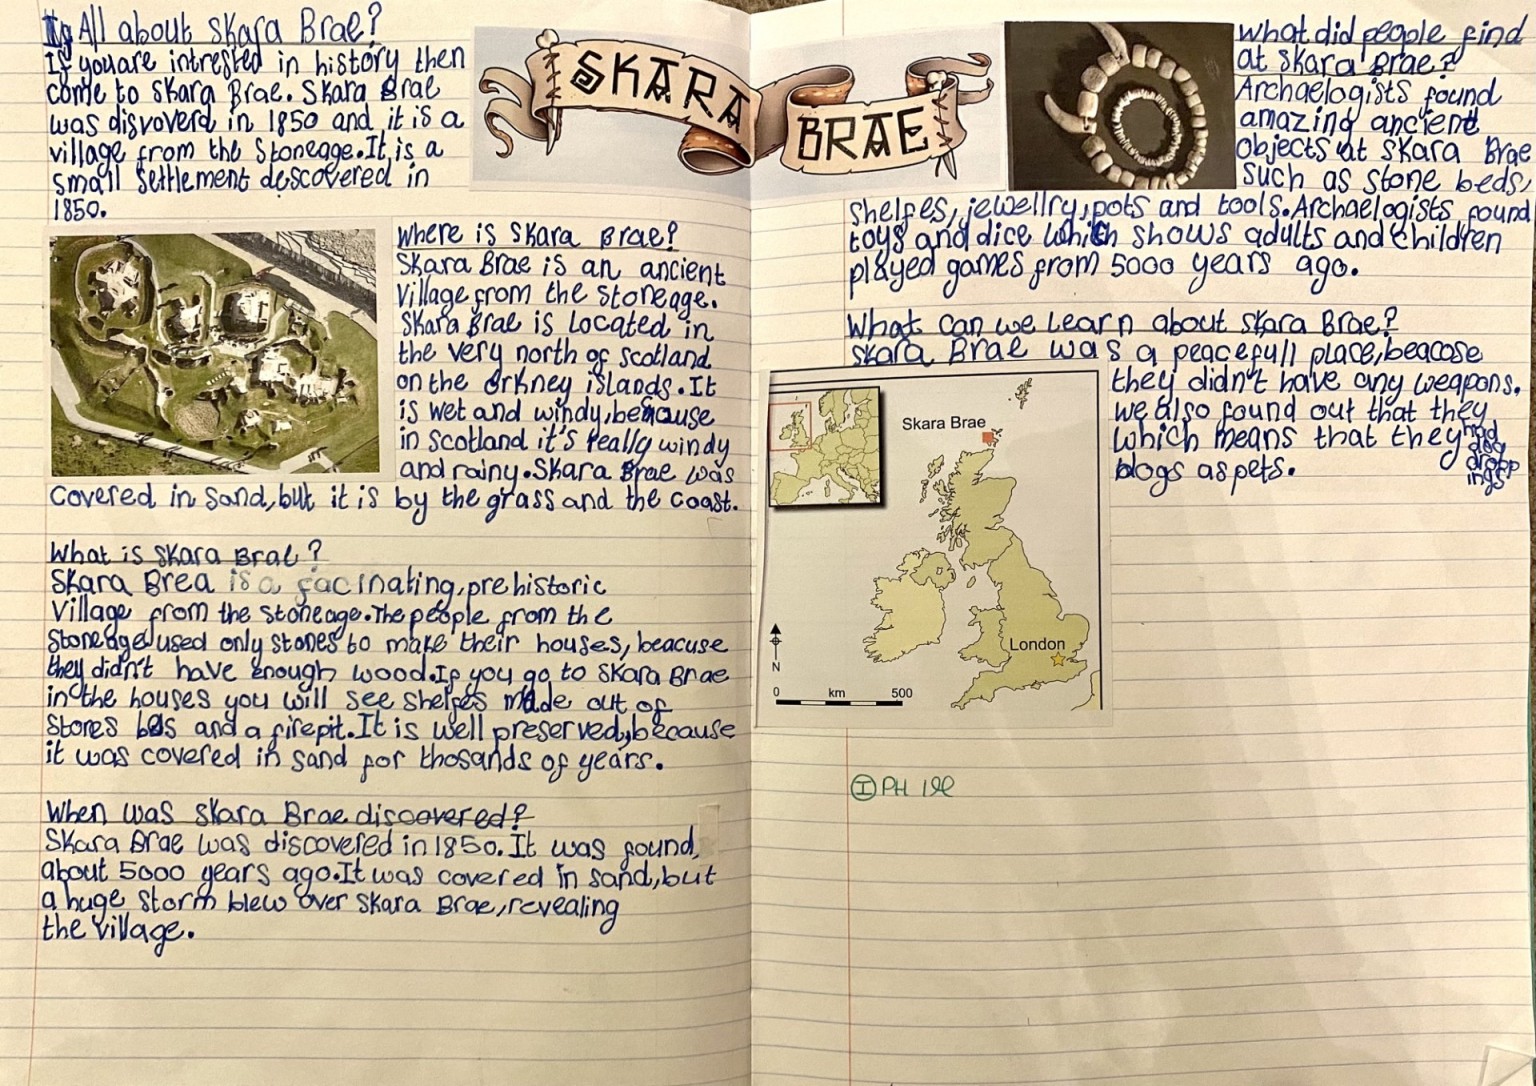 All about Skara Brae?
If you are intrested in history then
come to Skara Brae. Skara Brae
was disvoverd in 1850 and it is a
village from the Stoneage. It is a
small settlement descovered in
1850.
SKARA
BRAE
Where is Skara Brae?
Skara Brae is an ancient
village from the Stoneage.
Skara Brae is located in
the very north of scotland
on the orkney islands. It
is wet and windy, because
in scotland it's really windy
and rainy. Skara Brae was
covered in sand, but it is by the grass and the coast.
What is Skara Brae?
Skara Brea is a facinating, prehistoric
village from the Stoneage. The people from the
stoneage used only stones to make their houses, beacuse
they didn't have enough wood. If you go to Skara Brae
in the houses you will see shelfes made out of
stores beds and a firepit. It is well preserved, because
it was covered in sand for thosands of years.
When was Skara Brae discovered?
Skara Brae was discovered in 1850. It was found,
about 5000 years ago. It was covered in sand, but
a huge storm blew over Skara Brae, revealing
the village.
What did people find
at Skara Brae?
Archaelogists found
amazing ancient
objects at Skara Brae
such as stone beds,
shelfes, jewellry, pots and tools. Archaelogists found
toys and dice which shows adults and children
played games from 5000 years ago.
What can we learn about Skara Brae?
Skara Brae was a peacefull place, beacose
they didn't have any weapons.
we also found out that they
had dog droppings
which means that they
dogs as pets.
Skara Brae
London
N
0 km 500
I PH